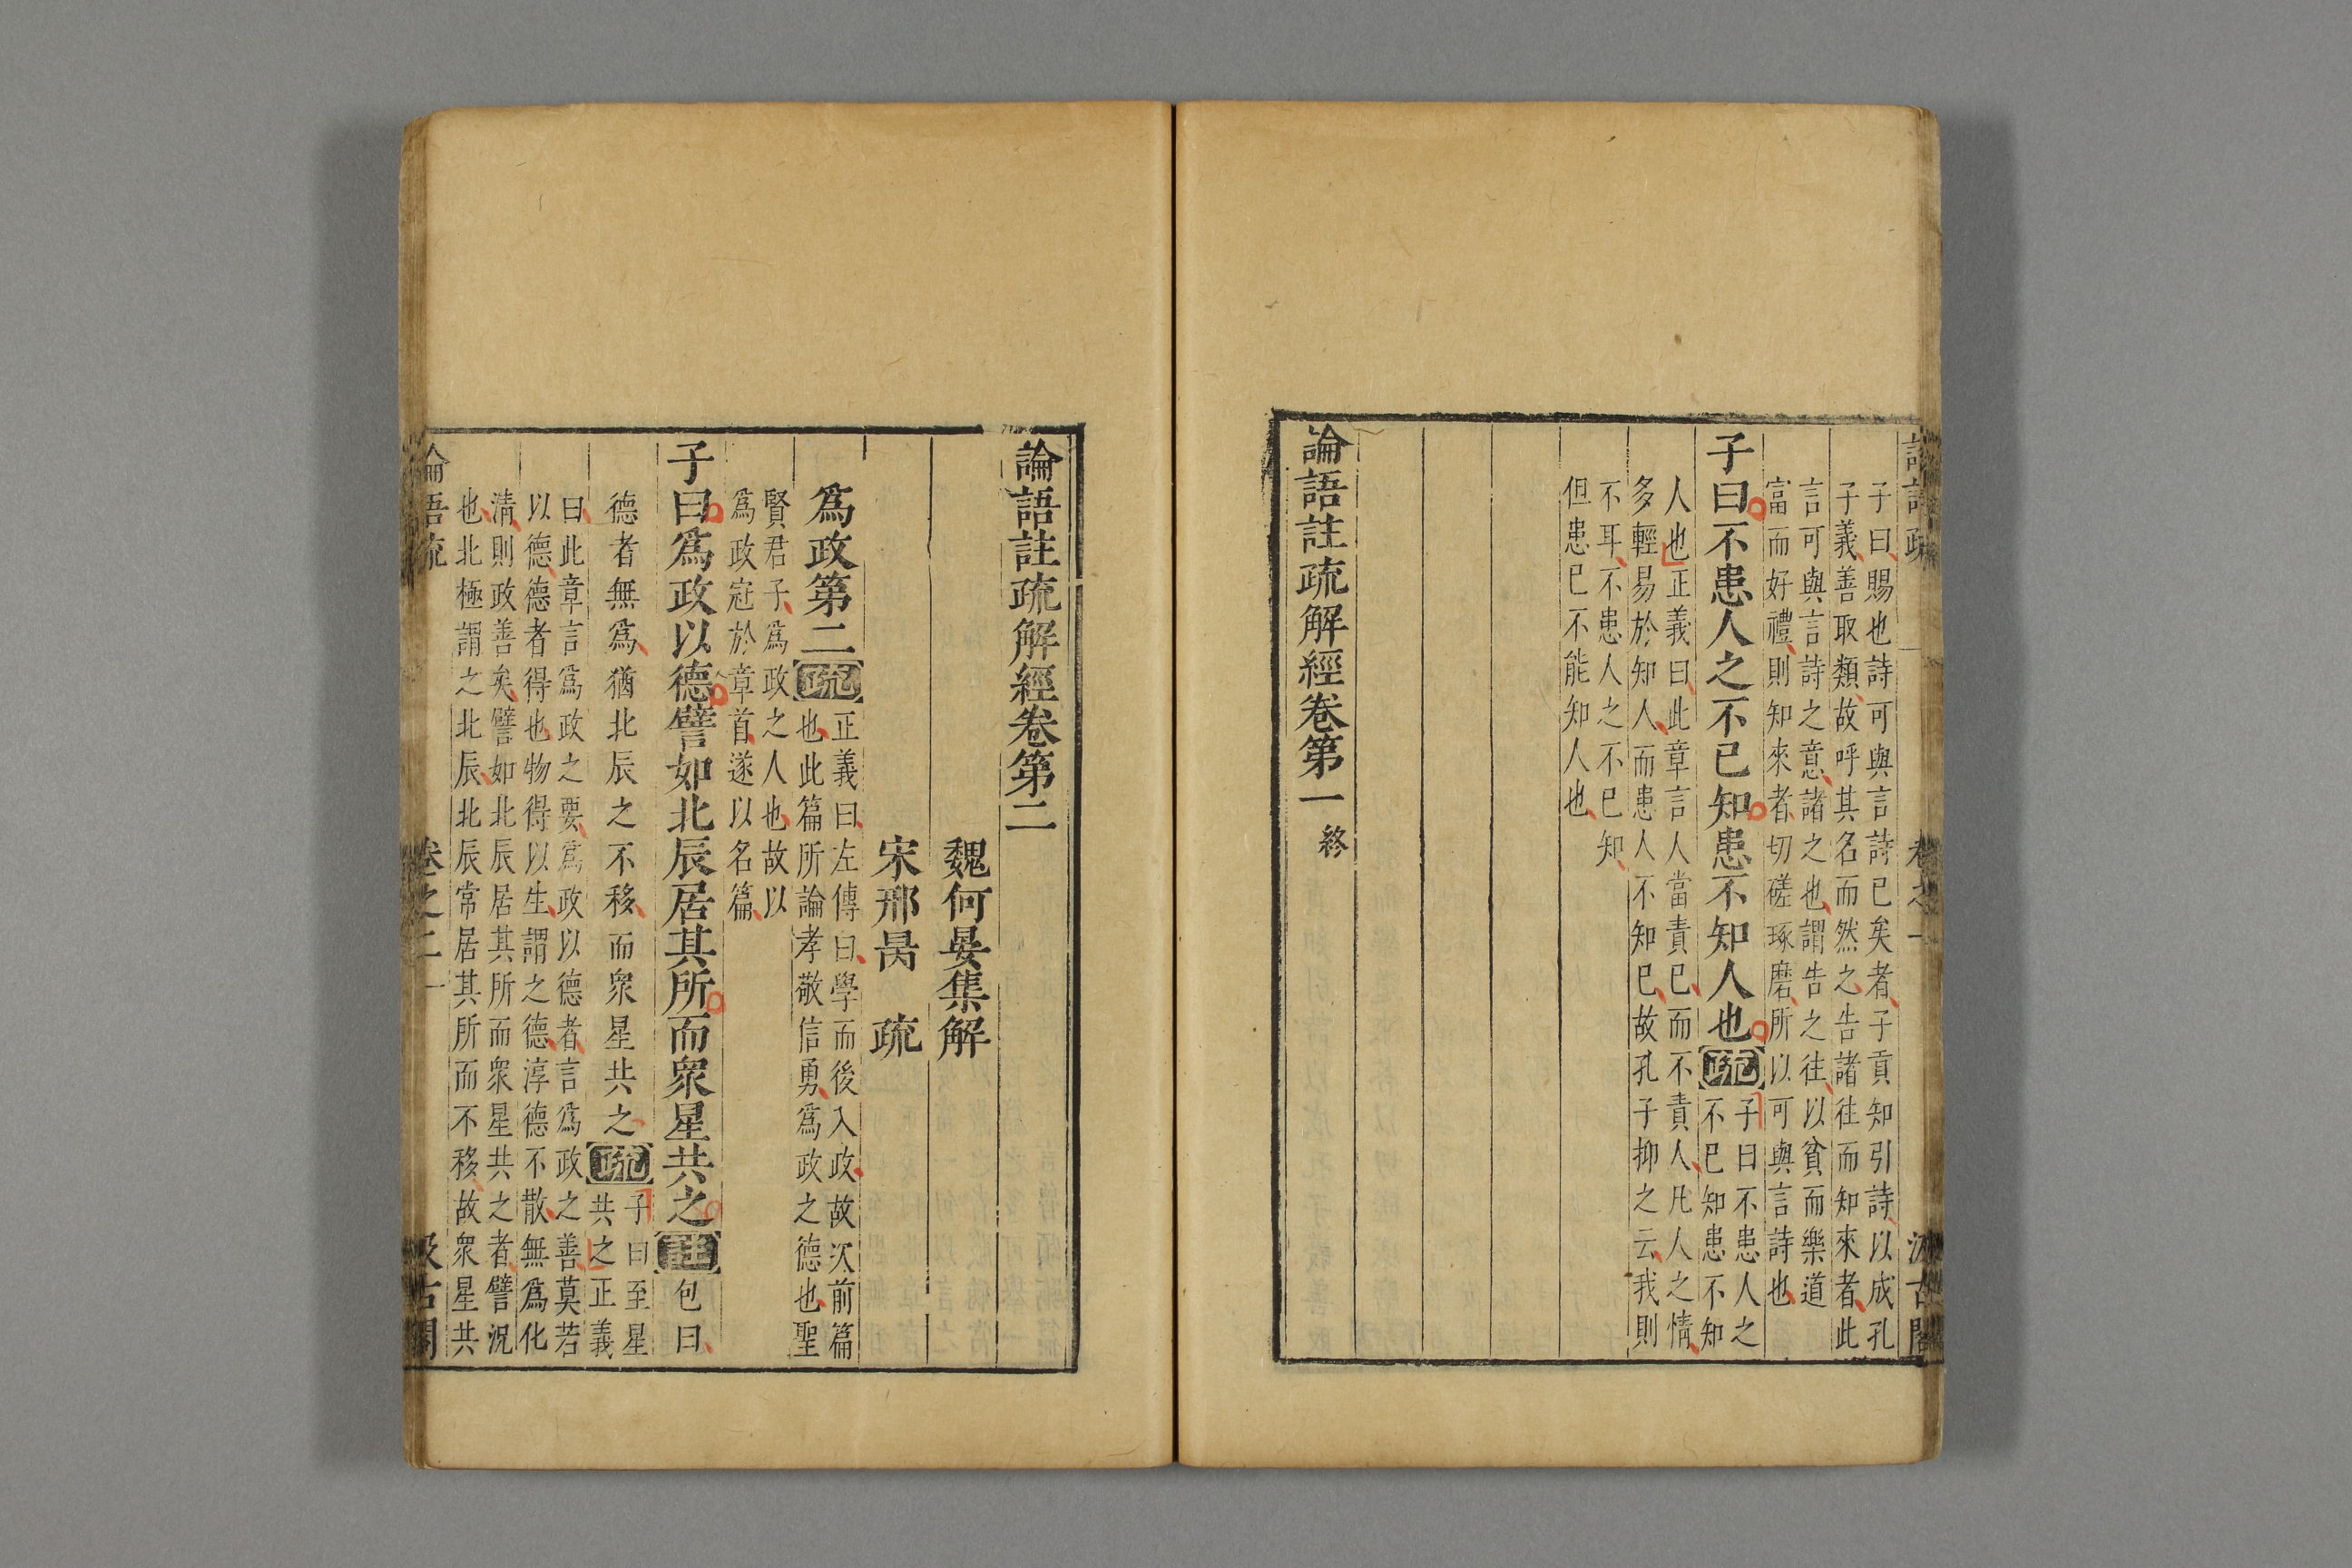 子曰賜也詩可與言詩已矣者子貢知引詩以成孔
子義善取類故呼其名而然之告諸往而知來者此
言可與言詩之意諸之也謂告之往以貧而樂道
富而好禮則知來者切磋琢磨所以可與言詩也
子曰不患人之不已知患不知人也疏
子曰不患人之
不已知患不知
人也正義曰此章言人當責已而不責人凡人之情
多輕易於知人而患人不知已故孔子抑之云我則
不耳不患人之不已知
但患已不能知人也
論語註疏解經卷第一終
論語註疏解經卷第二
魏何晏集解
宋邢昺 疏
爲政第二疏
正義曰左傳曰學而後入政故次前篇
也此篇所論孝敬信勇爲政之德也聖
賢君子爲政之人也故以
爲政冠於章首遂以名篇
子曰爲政以德譬如北辰居其所而衆星共之註包曰
德者無爲猶北辰之不移而衆星共之疏
子曰至星
共之正義
曰此章言爲政之要爲政以德者言爲政之善莫若
以德德者得也物得以生謂之德淳德不散無爲化
清則政善矣譬如北辰居其所而衆星共之者譬況
也北極謂之北辰北辰常居其所而不移故衆星共
卷之二